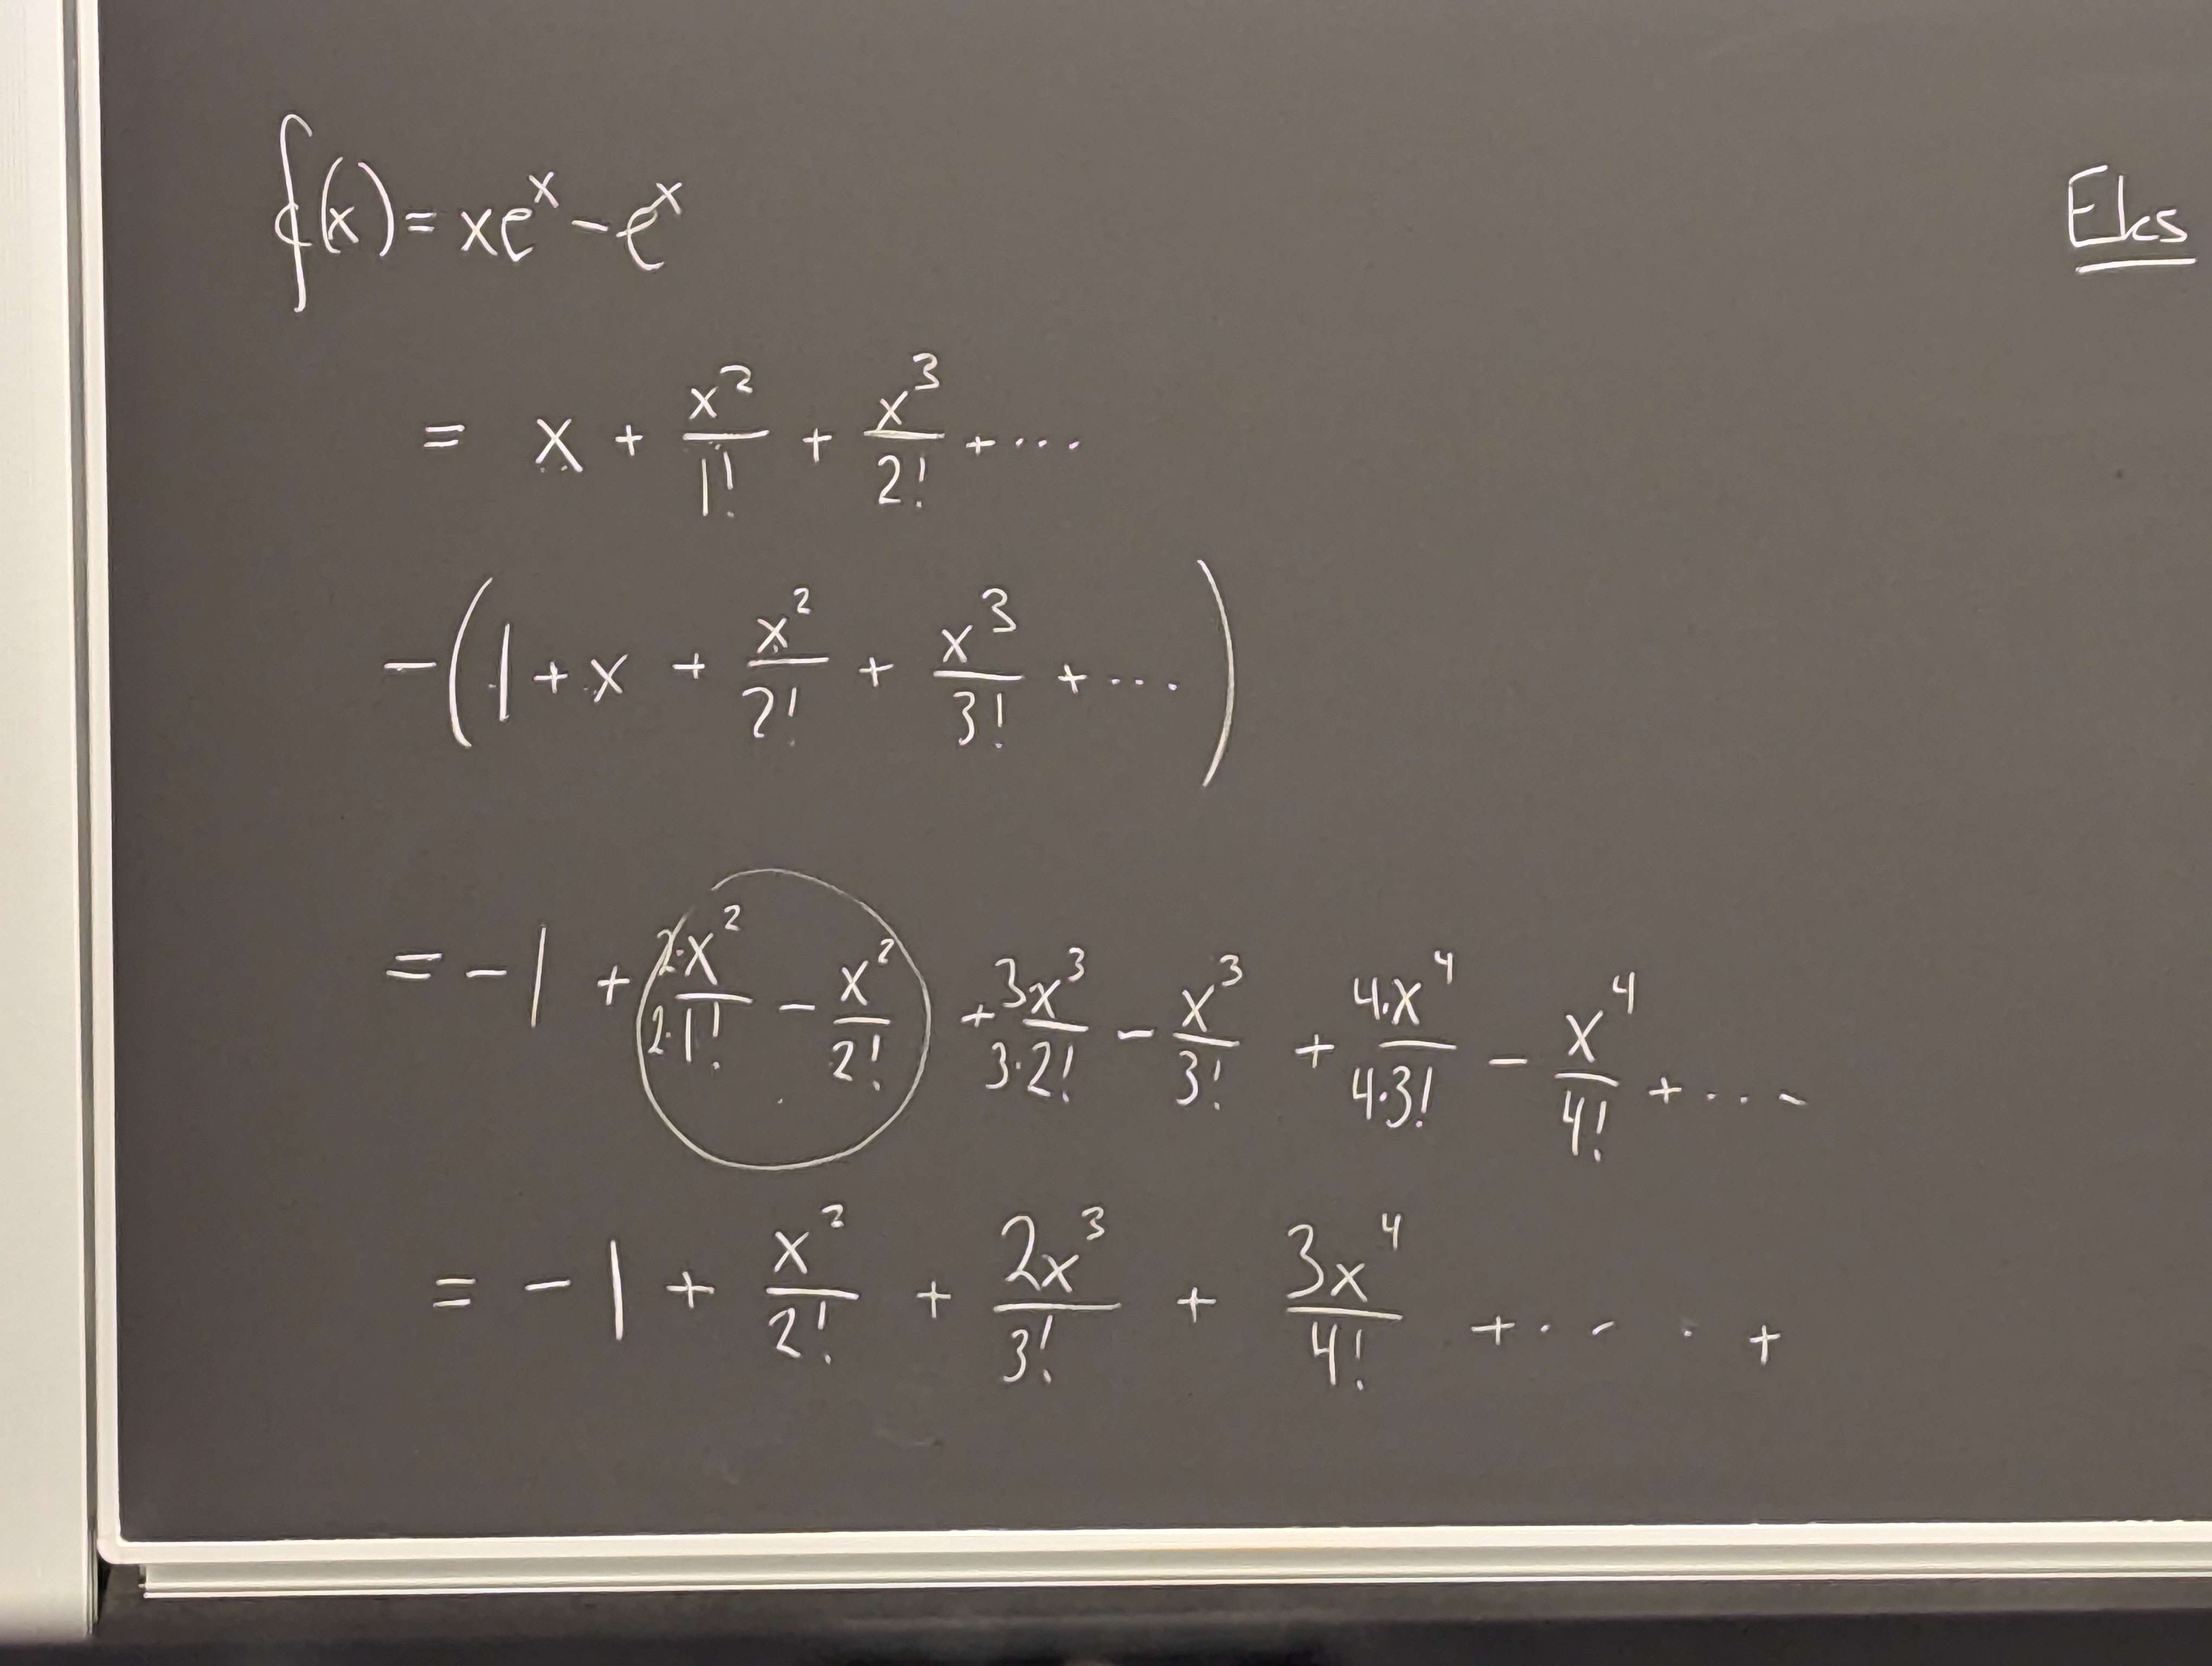 f(x) = xe^x - e^x
Eks
= x + x^2/1! + x^3/2! + ...
-(1 + x + x^2/2! + x^3/3! + ...)
= -1 + 2·x^2/2·1! - x^2/2! + 3x^3/3·2! - x^3/3! + 4·x^4/4·3! - x^4/4! + ...
= -1 + x^2/2! + 2x^3/3! + 3x^4/4! + .... +